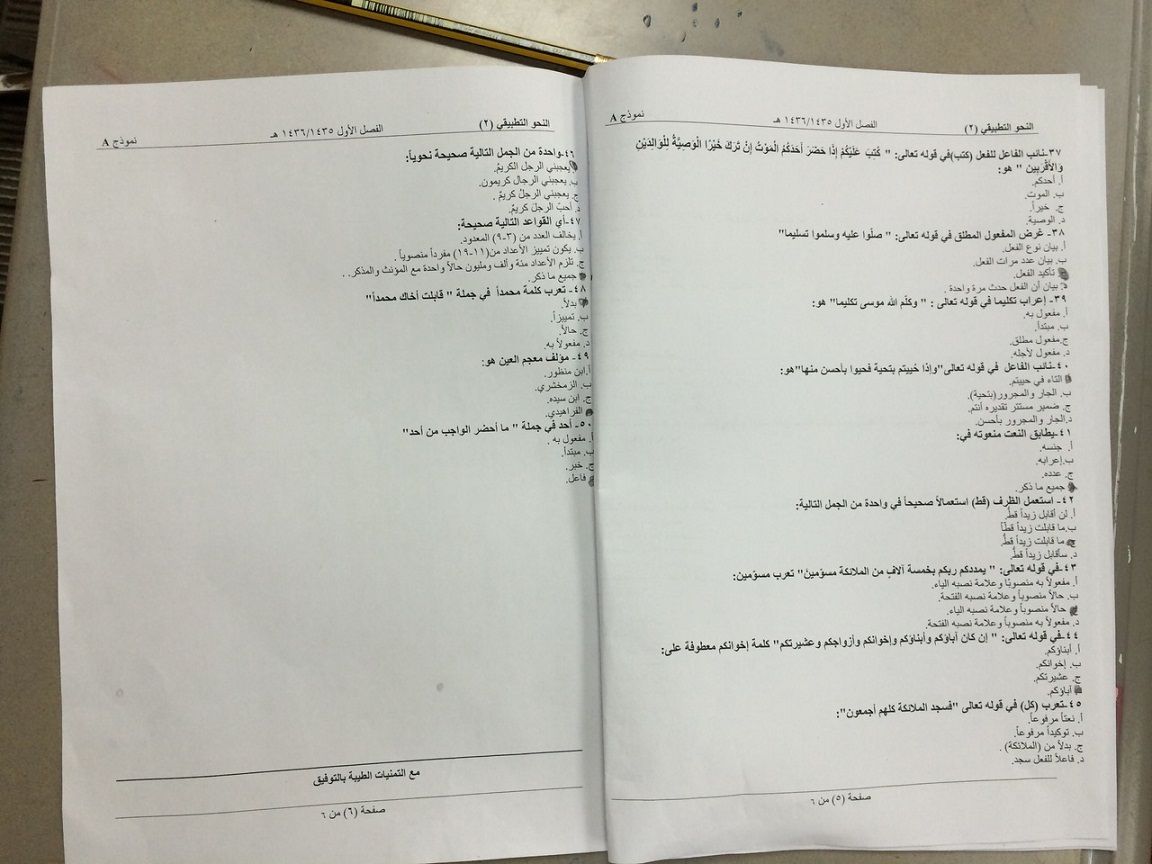 النحو التطبيقي (٢) الفصل الأول ١٤٣٥/١٤٣٦ هـ نموذج A
٣٧-نائب الفاعل للفعل (كتب)في قوله تعالى: " كُتِبَ عَلَيْكُمْ إِذَا حَضَرَ أَحَدَكُمُ الْمَوْتُ إِنْ تَرَكَ خَيْرًا الْوَصِيَّةُ لِلْوَالِدَيْنِ
وَالأَقْرَبِينَ " هو:
أ. أحدكم.
ب. الموت.
ج. خيراً.
د. الوصية.
٣٨- غرض المفعول المطلق في قوله تعالى: " صلّوا عليه وسلموا تسليما"
أ. بيان نوع الفعل.
ب. بيان عدد مرات الفعل.
تأكيد الفعل.
د. بيان أن الفعل حدث مرة واحدة .
٣٩- إعراب تكليما في قوله تعالى : " وكلّم الله موسى تكليما" هو:
أ. مفعول به.
ب. مبتدأ.
ج.مفعول مطلق.
د. مفعول لأجله.
٤٠-نائب الفاعل في قوله تعالى"وإذا حُييتم بتحية فحيوا بأحسن منها"هو:
التاء في حييتم.
ب. الجار والمجرور(بتحية).
ج. ضمير مستتر تقديره أنتم.
د.الجار والمجرور بأحسن.
٤١-يطابق النعت منعوته في:
أ. جنسه.
ب.إعرابه.
ج. عدده.
جميع ما ذكر.
٤٢- استعمل الظرف (قط) استعمالاً صحيحاً في واحدة من الجمل التالية:
أ. لن أقابل زيداً قطُّ.
ب.ما قابلت زيداً قطّاً
ما قابلت زيداً قطُّ
د. سأقابل زيداً قطُّ.
٤٣-في قوله تعالى: " يمددكم ربكم بخمسة آلافٍ من الملائكة مسوّمينَ" تعرب مسوّمين:
أ. مفعولاً به منصوبًا وعلامة نصبه الياء.
ب. حالاً منصوباً وعلامة نصبه الفتحة.
حالاً منصوباً وعلامة نصبه الياء.
د. مفعولاً به منصوباً وعلامة نصبه الفتحة.
٤٤-في قوله تعالى: " إن كان آباؤكم وأبناؤكم وإخوانكم وأزواجكم وعشيرتكم" كلمة إخوانكم معطوفة على:
أ. أبناؤكم.
ب. إخوانكم.
ج. عشيرتكم.
آباؤكم.
٤٥-تعرب (كل) في قوله تعالى "فسجد الملائكة كلهم أجمعون":
أ. نعتاً مرفوعاً.
ب. توكيداً مرفوعاً.
ج. بدلاً من (الملائكة) .
د. فاعلاً للفعل سجد.
صفحة (٥) من ٦
النحو التطبيقي (٢) الفصل الأول ١٤٣٥/١٤٣٦ هـ نموذج A
٤٦-واحدة من الجمل التالية صحيحة نحوياً:
يعجبني الرجل الكريمُ.
ب. يعجبني الرجال كريمون.
ج. يعجبني الرجلُ كريمٌ .
د. أحبّ الرجلَ كريمٌ.
٤٧-أي القواعد التالية صحيحة:
أ. يخالف العدد من (٣-٩) المعدود.
ب. يكون تمييز الأعداد من(١١-١٩) مفرداً منصوباً .
ج. تلزم الأعداد مئة وألف ومليون حالاً واحدة مع المؤنث والمذكر. .
جميع ما ذكر.
٤٨- تعرب كلمة محمداً في جملة " قابلت أخاك محمداً"
بدلاً.
ب. تمييزاً.
ج. حالاً.
د. مفعولاً به.
٤٩- مؤلف معجم العين هو:
أ.ابن منظور.
ب. الزمخشري.
ج. ابن سيده.
الفراهيدي.
٥٠- أحد في جملة " ما أحضر الواجب من أحد"
أ. مفعول به .
ب. مبتدأ.
ج. خبر.
فاعل.
مع التمنيات الطيبة بالتوفيق
صفحة (٦) من ٦